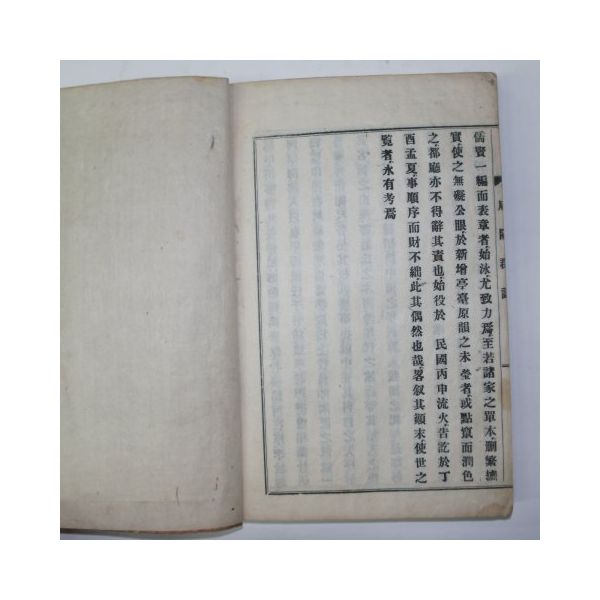 儒賢一編而表章者、始泳尤致力焉、至若諸家之單本、刪繁摭
實、使之無礙公眼、於新增亭臺原韻之未瑩者、或點竄而潤色
之、都廳亦不得辭其責也、始役於 民國丙申流火、告訖於丁
酉孟夏、事順序而財不絀、此其偶然也哉、畧叙其顚末、使世之
覧者、永有考焉